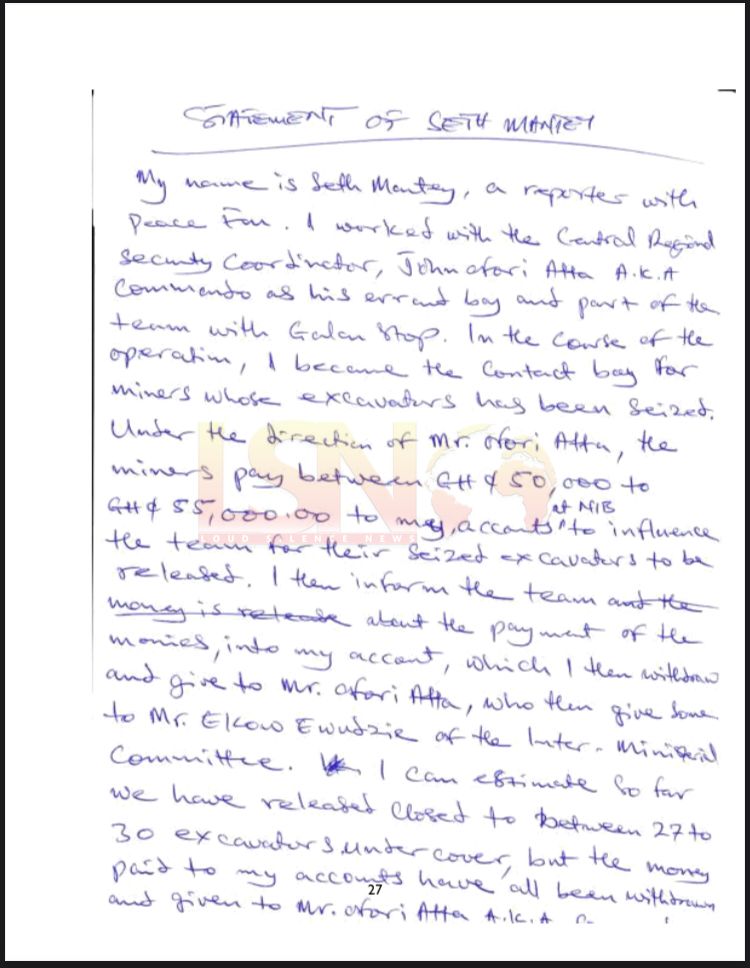 STATEMENT OF SETH MANTEY
My name is Seth Mantey, a reporter with
Peace Fm. I worked with the Central Regional
Security Coordinator, John Ofori Atta A.K.A
Commando as his errand boy and part of the
team with Galamstop. In the course of the
operation, I became the contact boy for
miners whose excavators has been seized.
Under the direction of Mr. Ofori Atta, the
miners pay between GH¢ 50,000 to
GH¢ 55,000.00 to my accounts at NIB to influence
LSN
LOUD SILENCE NEWS
the team for their seized excavators to be
released. I then inform the team and the
money is release about the payment of the
monies, into my account, which I then withdraw
and give to Mr. Ofori Atta, who then give some
to Mr. Ekow Ewudzie of the Inter-Ministerial
Committee. I can estimate so far
we have released closed to between 27 to
30 excavators under cover, but the money
paid to my accounts have all been withdrawn
27
and given to Mr. Ofori Atta A.K.A